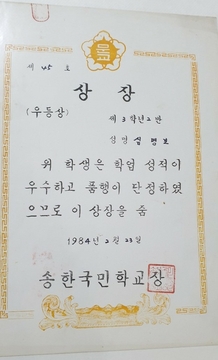 제 45 호
상장
(우등상)
제 3 학년 2 반
성명 심명보
위 학생은 학업 성적이
우수하고 품행이 단정하였
으므로 이 상장을 줌
1984년 2월 23일
송한국민학교장